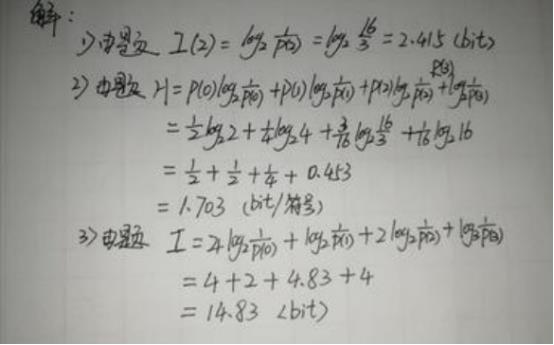 解：
1) 由题意 I(2) = log₂ 1/P(2) = log₂ 16/3 = 2.415 (bit)
2) 由题意 H = P(0)log₂ 1/P(0) + P(1)log₂ 1/P(1) + P(2)log₂ 1/P(2) + P(3)log₂ 1/P(3)
= 1/2 log₂2 + 1/4 log₂4 + 3/16 log₂ 16/3 + 1/16 log₂16
= 1/2 + 1/2 + 1/4 + 0.453
= 1.703 (bit/符号)
3) 由题意 I = 4 log₂ 1/P(0) + log₂ 1/P(1) + 2 log₂ 1/P(2) + log₂ 1/P(3)
= 4 + 2 + 4.83 + 4
= 14.83 (bit)